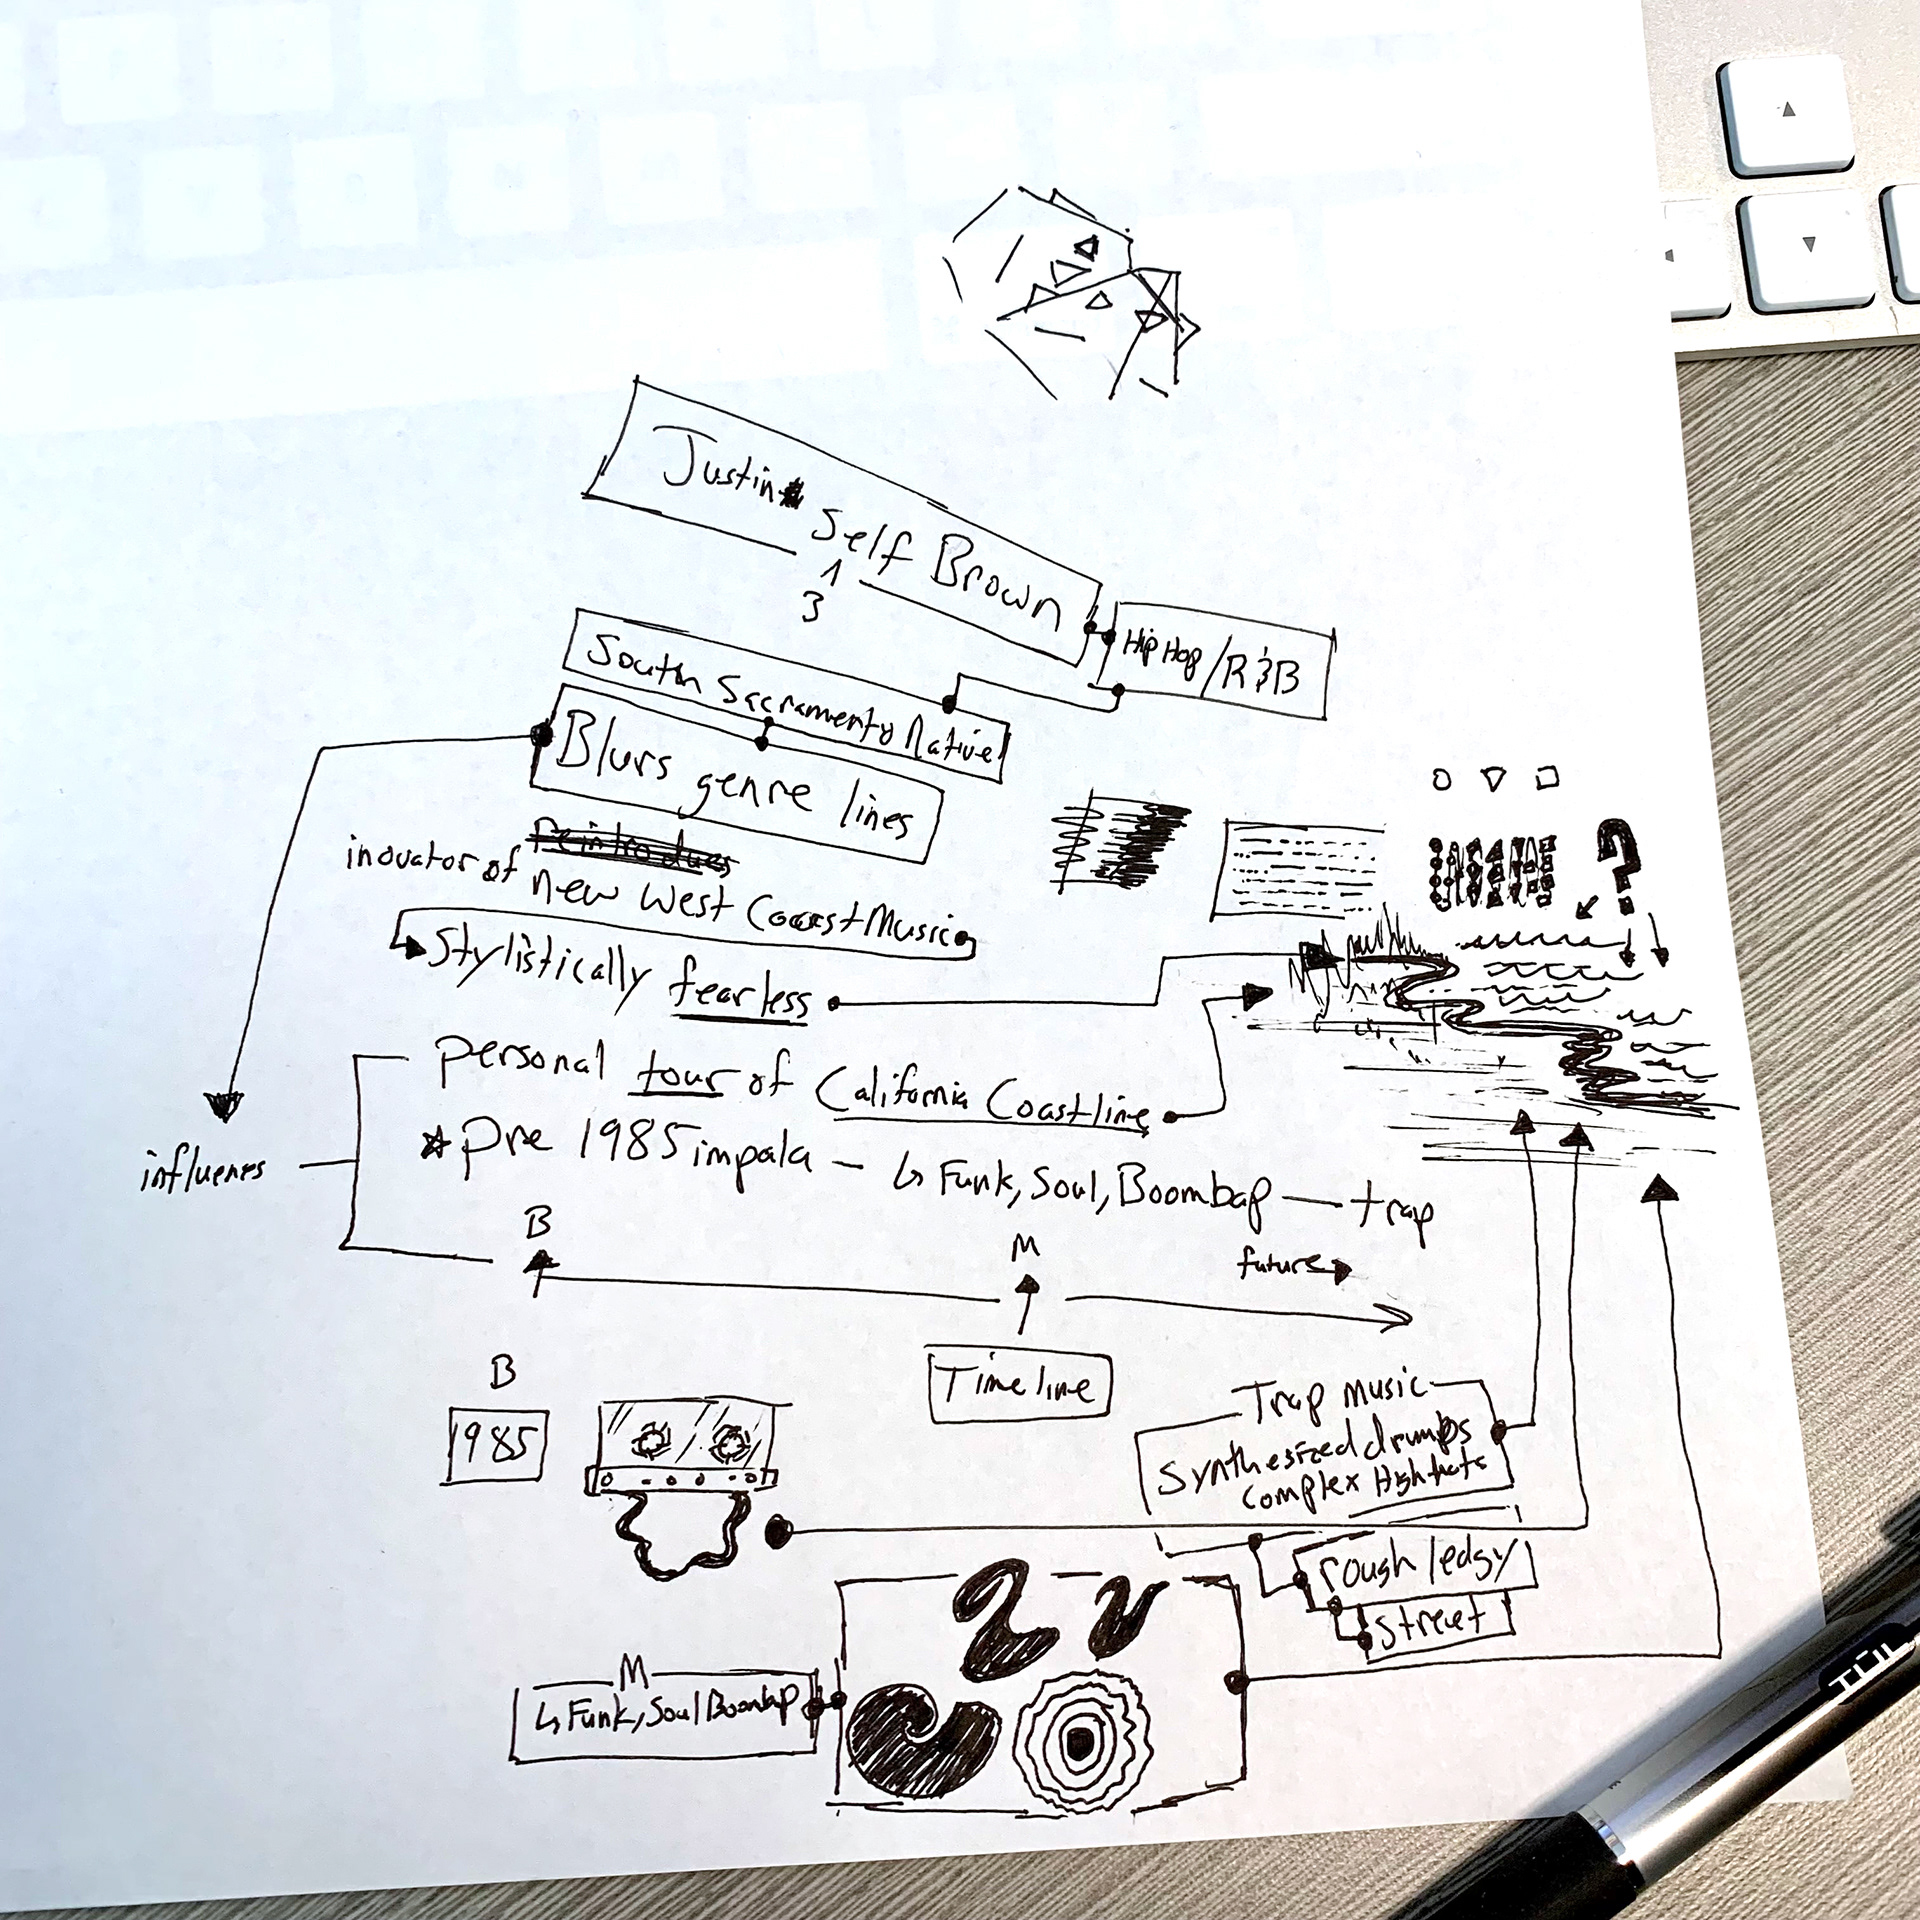 Justin
Self Brown
3
Hip Hop/R&B
South Sacramento Native
Blurs genre lines
inovator of
new West Coast Music
Stylistically fearless
personal tour of California Coastline
influenes
*pre 1985 impala – ↳ Funk, Soul, Boombap — trap
B
M
future
Timeline
B
1985
Trap music
Synthesized drumps
complex High hats
rough/edgy
street
M
↳ Funk, Soul Boombap
?
TUL